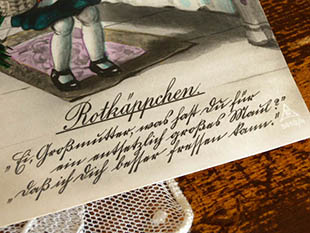 Rotkäppchen.
"Ei, Großmutter, was hast Du für
ein entsetzlich großes Maul?"
"Daß ich Dich besser fressen kann."